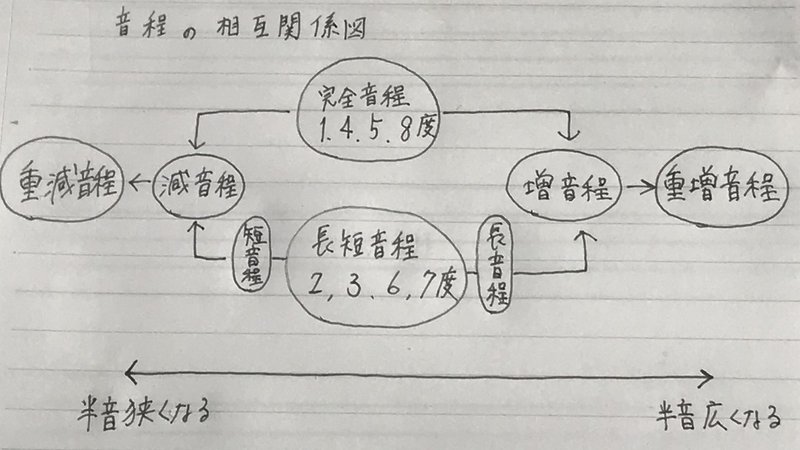 音程の相互関係図
完全音程
1.4.5.8度
重減音程
減音程
増音程
重増音程
短音程
長短音程
2,3,6,7度
長音程
半音狭くなる
半音広くなる